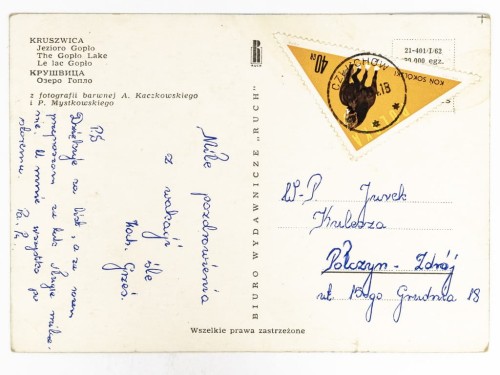 KRUSZWICA
Jezioro Gopło
The Gopło Lake
Le lac Gopło
КРУШВИЦА
Озеро Гопло
z fotografii barwnej A. Kaczkowskiego
i P. Mystkowskiego
Miłe pozdrowienia
z wakacji śle
Grześ.
P.S
Dziękuję za list, a za
przepraszam za
nie. U mnie wszystko po
staremu.
BIURO WYDAWNICZE „RUCH"
R
40 GR
KOŃ SOKÓLSKI
POLSKA
CZŁUCHÓW
21-401/I/62
000 egz.
W.P. Jurek
Kulesza
Połczyn-Zdrój
ul. 15-go Grudnia 18
Wszelkie prawa zastrzeżone